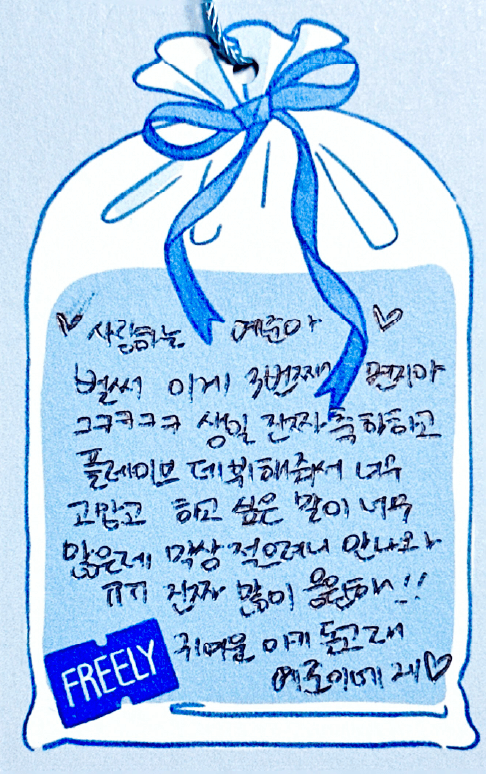 ♡ 사랑하는 예준아 ♡
벌써 이게 3번째 편지야
ㅋㅋㅋㅋㅋ 생일 진짜 축하하고
플레이브 데뷔해줘서 너무
고맙고 하고 싶은 말이 너무
많은데 막상 적으려니 안나와
ㅠㅠ 진짜 많이 응원해!!
귀여운 아기 돌고래
예준이에게♡
FREELY